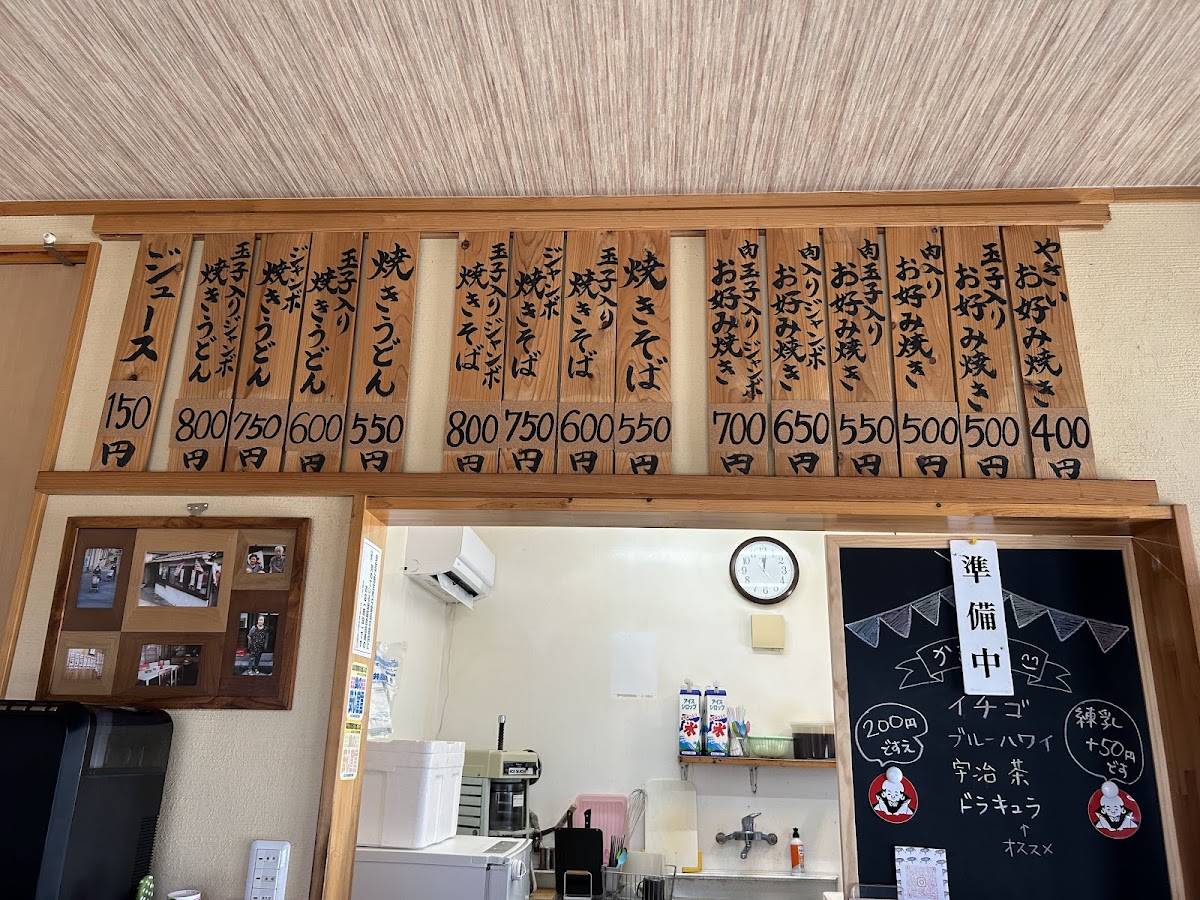 やさい
お好み焼き
400
円
玉子入り
お好み焼き
500
円
肉入り
お好み焼き
500
円
肉玉子入り
お好み焼き
550
円
肉入りジャンボ
お好み焼き
650
円
肉玉子入りジャンボ
お好み焼き
700
円
焼きそば
550
円
玉子入り
焼きそば
600
円
ジャンボ
焼きそば
750
円
玉子入りジャンボ
焼きそば
800
円
焼きうどん
550
円
玉子入り
焼きうどん
600
円
ジャンボ
焼きうどん
750
円
玉子入りジャンボ
焼きうどん
800
円
ジュース
150
円
準備中
か
イチゴ
ブルーハワイ
宇治茶
ドラキュラ
↑
オススメ
200円
ですえ
練乳
+50円
です
アイス
シロップ
氷
アイス
シロップ
氷